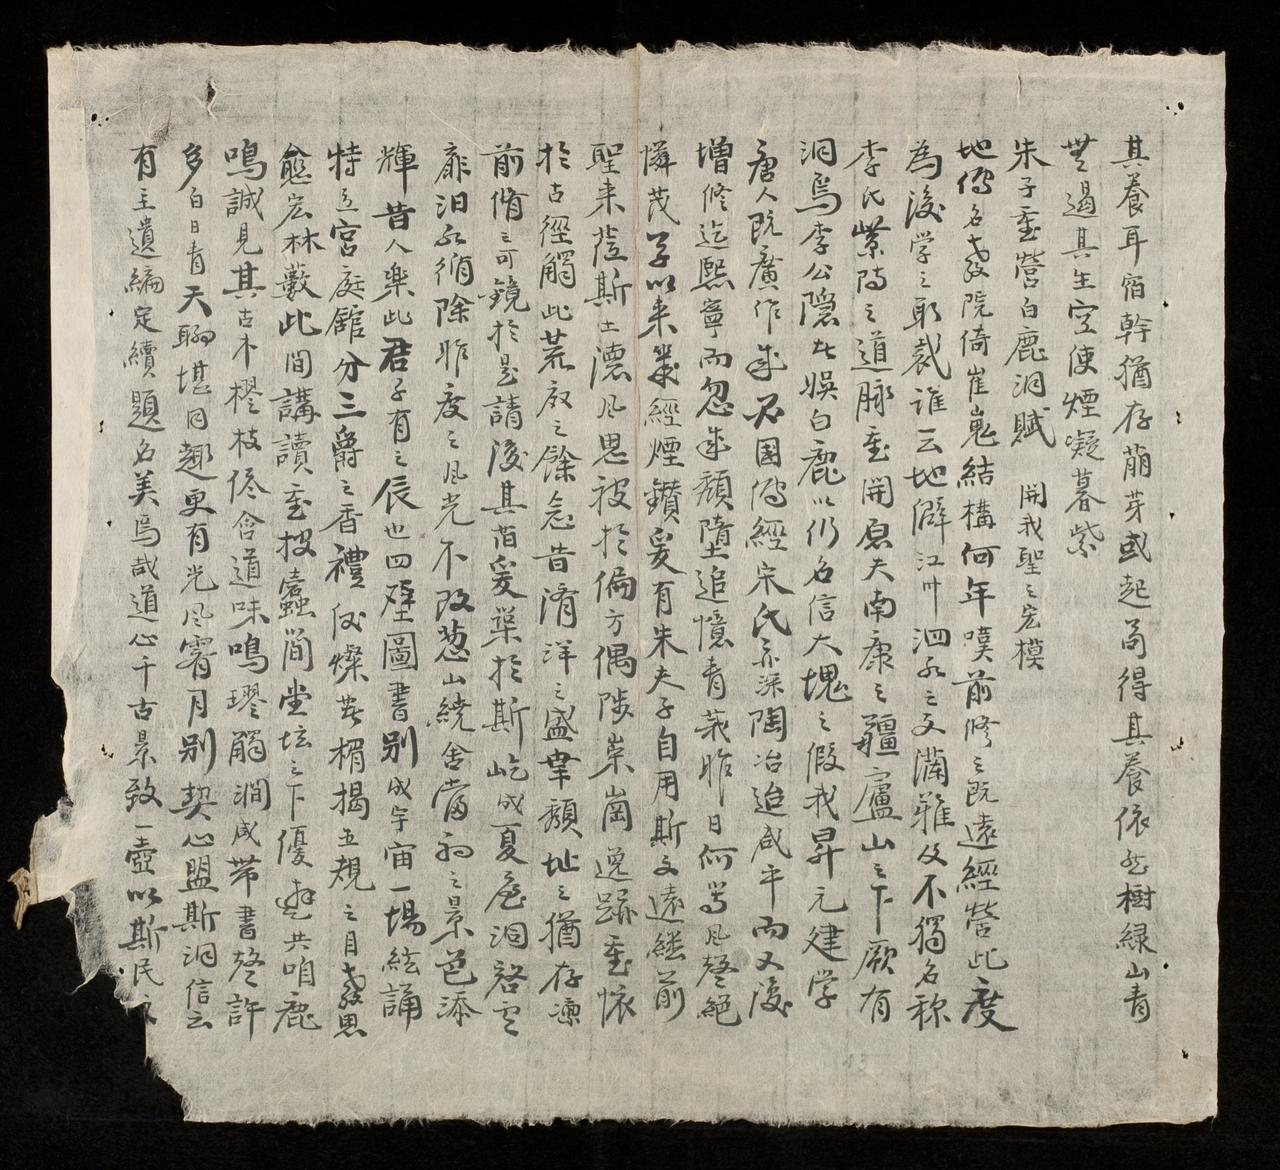 其養耳宿幹猶存萠芽或起苟得其養依然樹緑山青
無遏其生空使煙凝暮紫
朱子重營白鹿洞賦 開我聖之宏模
地傳名教院倚崔嵬結構何年嘆前修之既遠經營此度
為後学之取裁誰云地僻江州泗水之文瀾雅及不獨名称
李氏蘩陰之道脉重開原夫南康之疆廬山之下厥有
洞焉李公隱者娛白鹿以仍名信大塊之假我昇元建学
唐人既廣作成名國傳經宋氏亦深陶冶迨咸平而又復
增修迄熙寧而忽成頽墮追憶青莪昨日何當風聲絕
憐茂草以来幾經煙鑽爰有朱夫子自用斯文遠継前
聖来莅斯土德風思被於偏方偶陟崇崗逸跡重懷
於古徑觸此荒寂之餘念昔濟洋之盛聿頽址之猶存凛
前脩之可鏡於是請復其舊爰築於斯屹成夏屋洞啓雲
扉汨水循除昨度之風光不改葱山繞舍當初之景色添
輝昔人樂此君子有之辰也四壁圖書别成宇宙一場絃誦
特立宮庭舘分三爵之香禮儀燦若楣揭五規之目教思
愈宏林藪此間講讀重投蠹簡堂坛之下優遊共咱鹿
鳴誠見其古木樛枝俻含道味鳴璆觸澗咸带書聲許
多白日青天聊堪同趣更有光風霽月别契心盟斯洞信云
有主遺編定續題名美焉哉道心千古景致一壺以斯民